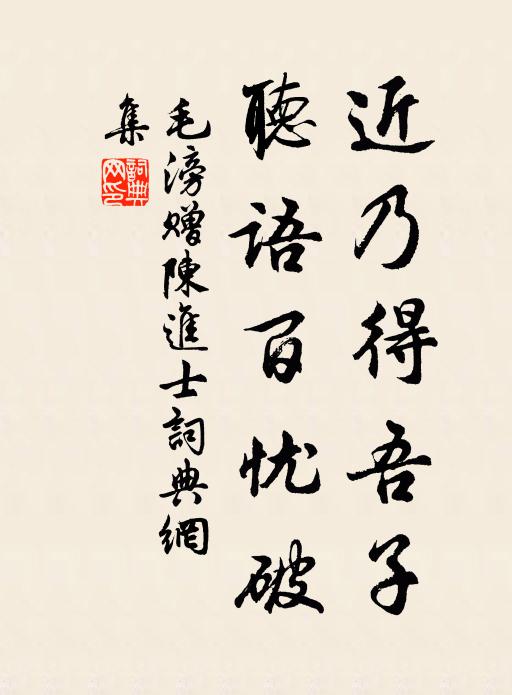 近乃得吾子
聽語百忧破
毛滂贈陳進士詞典網
集
詞典网印